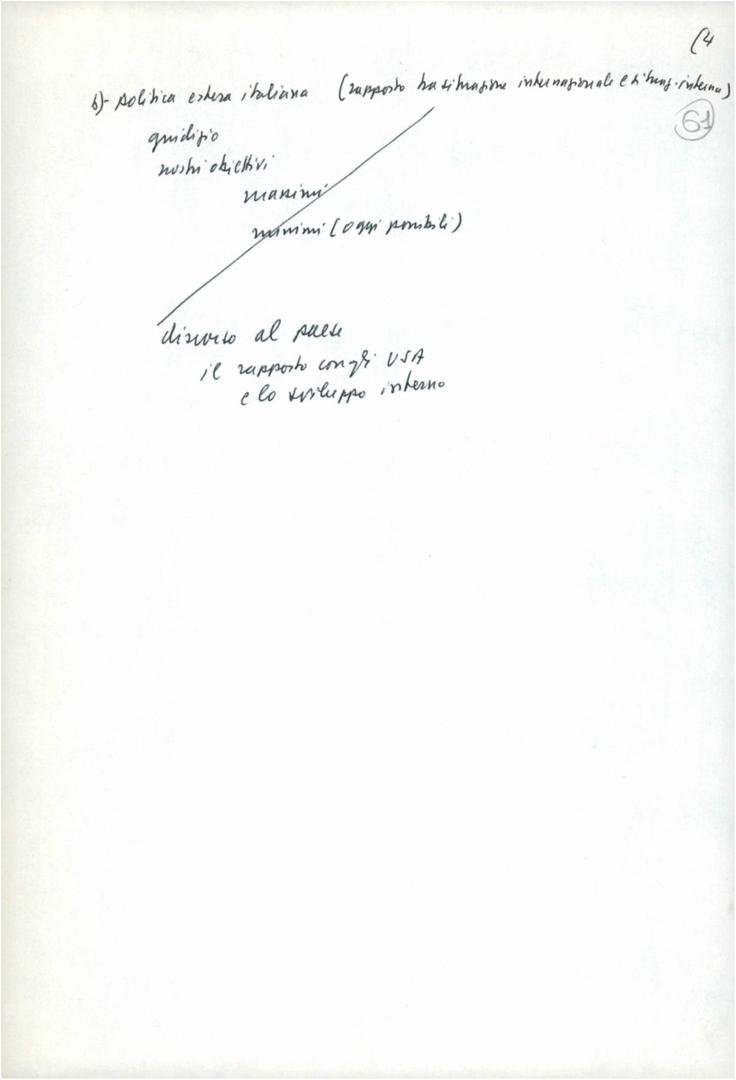 (4
b)- politica estera italiana (rapporto tra situazione internazionale e situaz. interna)
61
giudizio
nostri obiettivi
massimi
minimi (oggi possibili)
discorso al paese
il rapporto con gli USA
e lo sviluppo interno